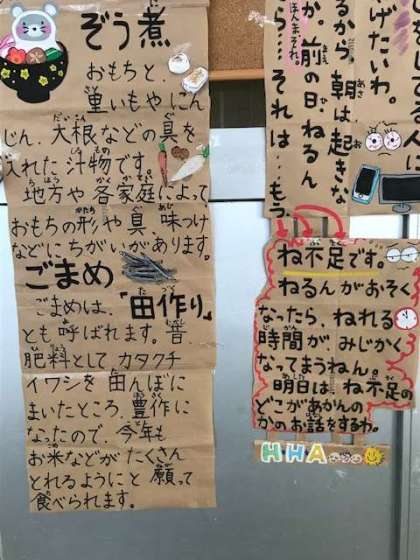 ぞう煮
おもちと、
里いもやにん
じん、大根などの具を
入れた汁物です。
地方や各家庭によって
おもちの形や具、味つけ
などにちがいがあります。
ごまめ
ごまめは、「田作り」
とも呼ばれます。昔、
肥料としてカタクチ
イワシを田んぼに
まいたところ、豊作に
なったので、今年も
お米などがたくさん
とれるようにと願って
食べられます。
げたいわ。
るから朝は起きな
が、前の日、ねるん
ほんまそれ。
ら…それは…もう、
ね不足です。
ねるんがおそく
なったら、ねれる
時間がみじかく
なってまうねん。
明日は、ね不足の
どこがあかんの
かのお話をするわ。
HHA